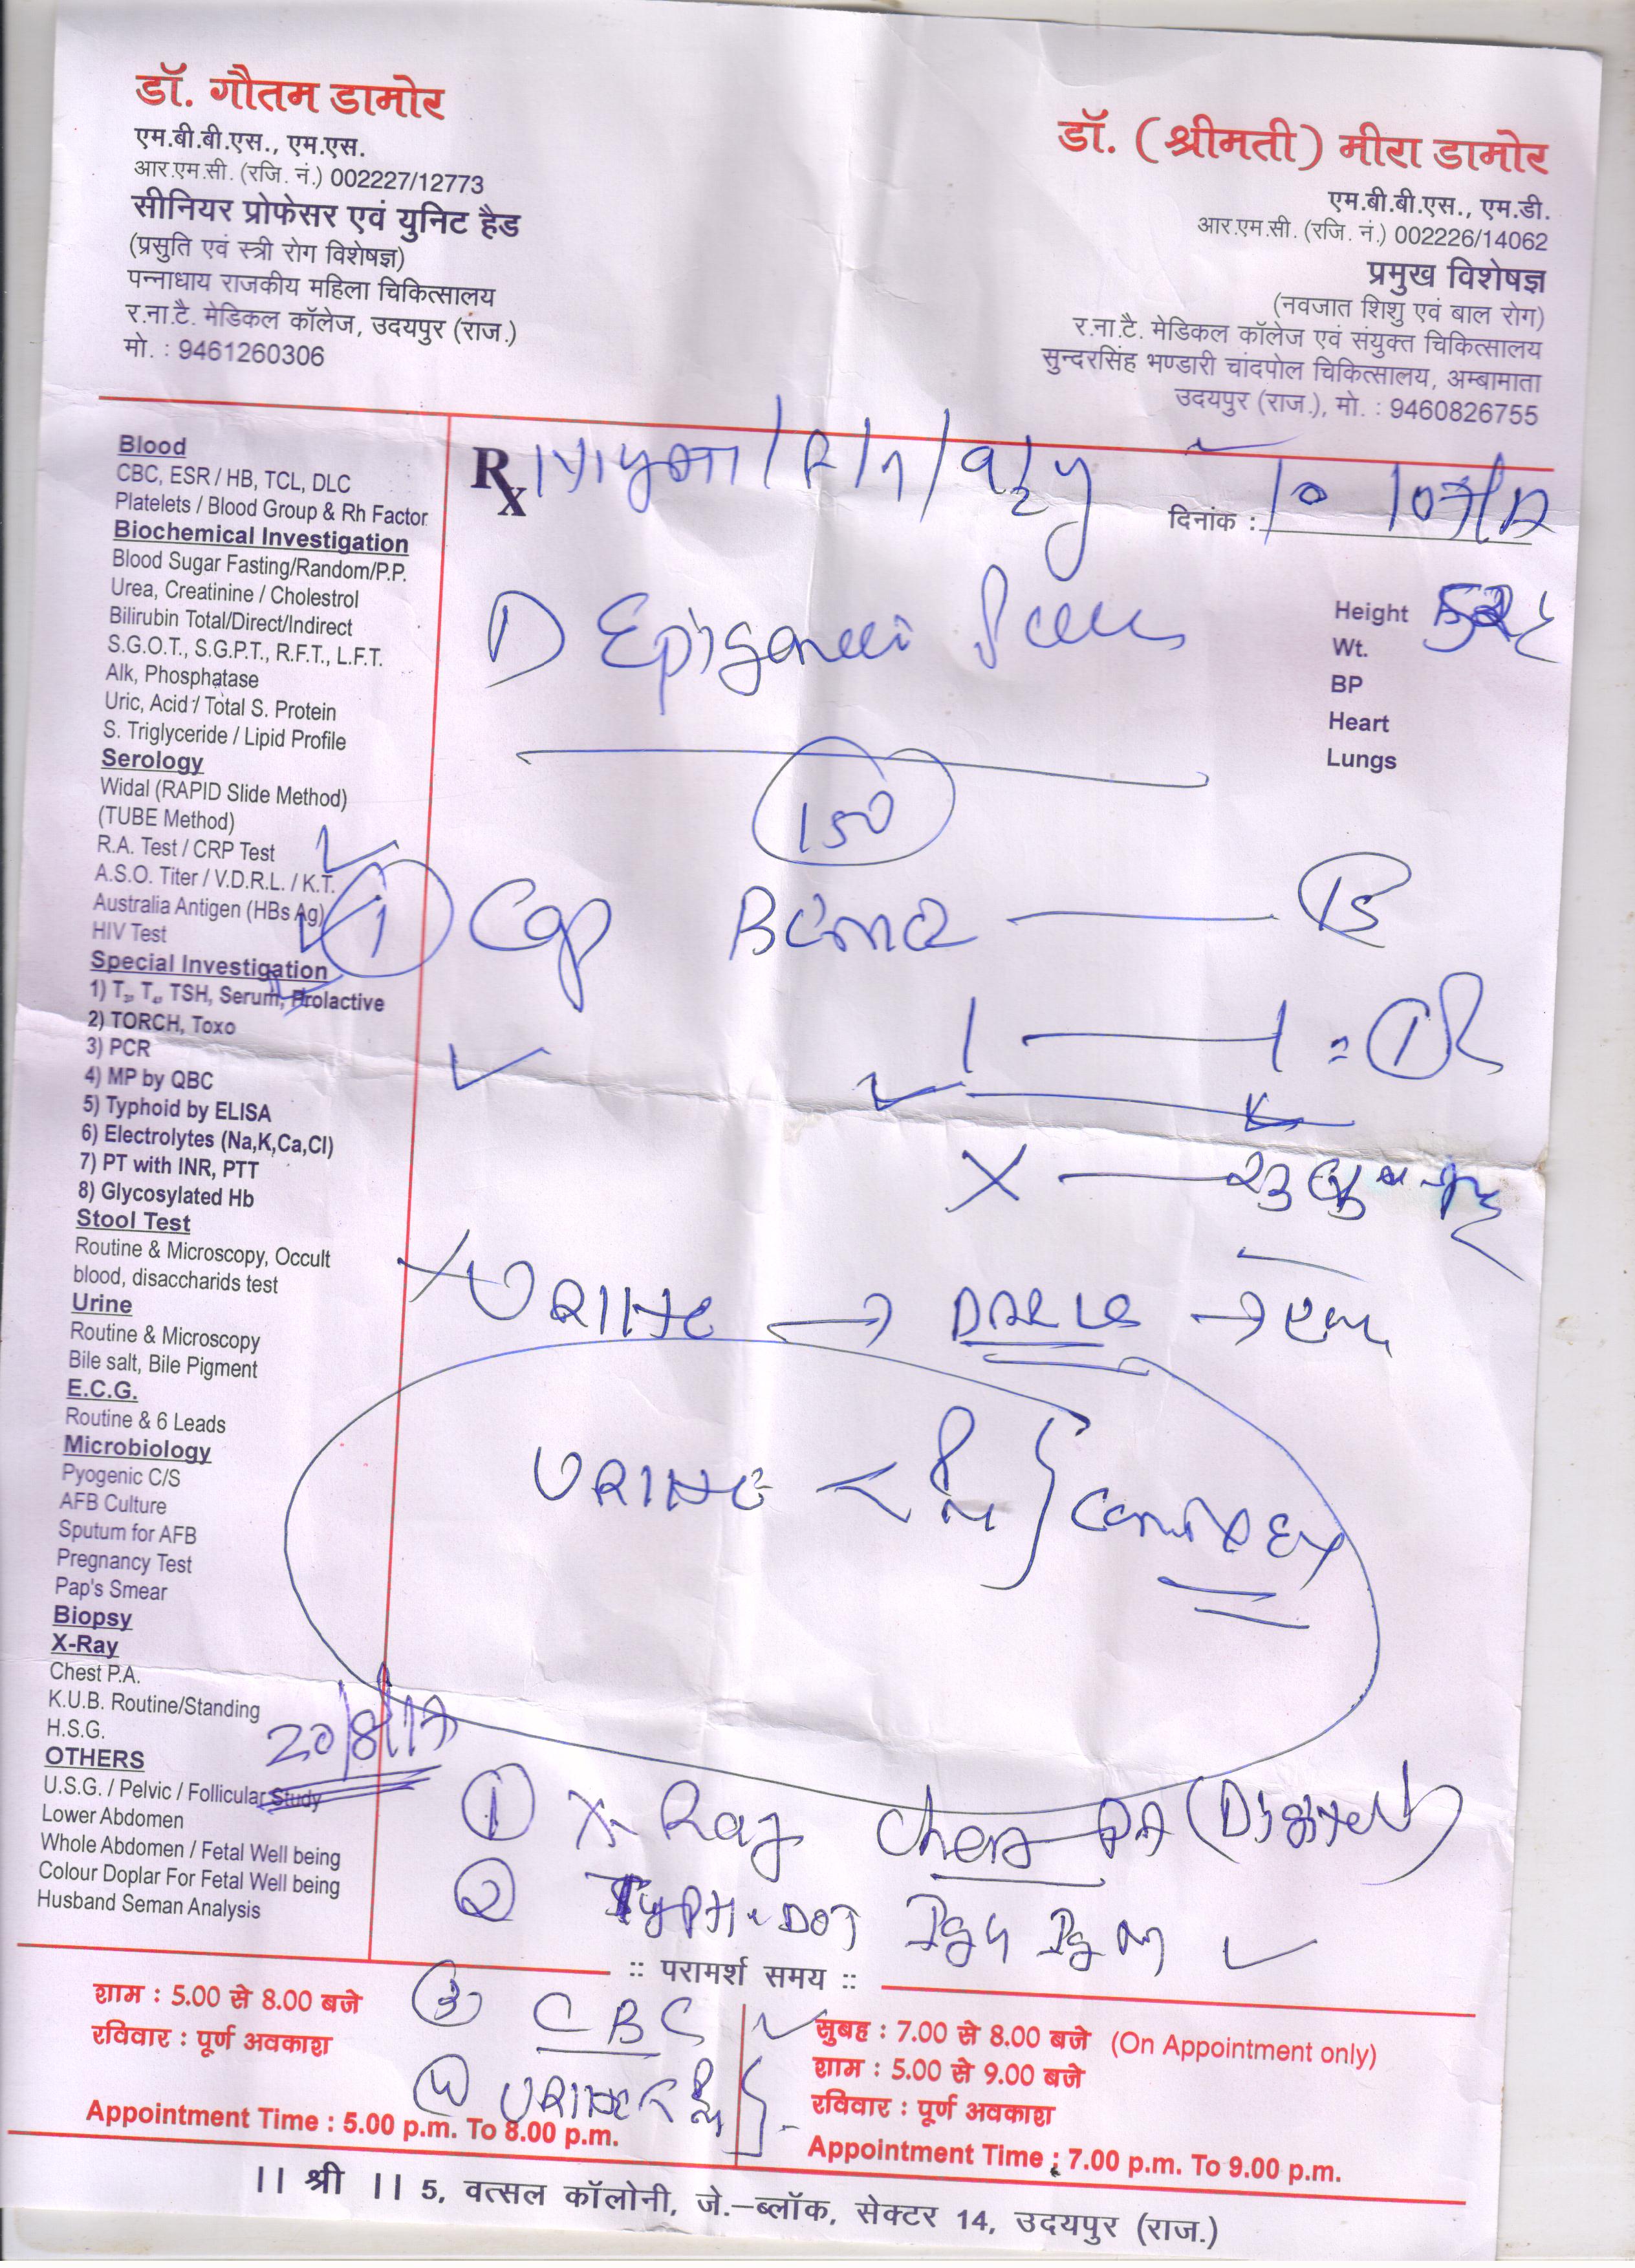 डॉ. गौतम डामोर
एम.बी.बी.एस., एम.एस.
आर.एम.सी. (रजि. नं.) 002227/12773
सीनियर प्रोफेसर एवं युनिट हैड
(प्रसुति एवं स्त्री रोग विशेषज्ञ)
पन्नाधाय राजकीय महिला चिकित्सालय
र.ना.टै. मेडिकल कॉलेज, उदयपुर (राज.)
मो. : 9461260306
डॉ. (श्रीमती) मीरा डामोर
एम.बी.बी.एस., एम.डी.
आर.एम.सी. (रजि. नं.) 002226/14062
प्रमुख विशेषज्ञ
(नवजात शिशु एवं बाल रोग)
र.ना.टै. मेडिकल कॉलेज एवं संयुक्त चिकित्सालय
सुन्दरसिंह भण्डारी चांदपोल चिकित्सालय, अम्बामाता
उदयपुर (राज.), मो. : 9460826755
Blood
CBC, ESR / HB, TCL, DLC
Platelets / Blood Group & Rh Factor
Biochemical Investigation
Blood Sugar Fasting/Random/P.P.
Urea, Creatinine / Cholestrol
Bilirubin Total/Direct/Indirect
S.G.O.T., S.G.P.T., R.F.T., L.F.T.
Alk, Phosphatase
Uric, Acid / Total S. Protein
S. Triglyceride / Lipid Profile
Serology
Widal (RAPID Slide Method)
(TUBE Method)
R.A. Test / CRP Test
A.S.O. Titer / V.D.R.L. / K.T.
Australia Antigen (HBs Ag)
HIV Test
Special Investigation
1) T3, T4, TSH, Serum, Prolactive
2) TORCH, Toxo
3) PCR
4) MP by QBC
5) Typhoid by ELISA
6) Electrolytes (Na,K,Ca,Cl)
7) PT with INR, PTT
8) Glycosylated Hb
Stool Test
Routine & Microscopy, Occult
blood, disaccharids test
Urine
Routine & Microscopy
Bile salt, Bile Pigment
E.C.G.
Routine & 6 Leads
Microbiology
Pyogenic C/S
AFB Culture
Sputum for AFB
Pregnancy Test
Pap's Smear
Biopsy
X-Ray
Chest P.A.
K.U.B. Routine/Standing
H.S.G.
OTHERS
U.S.G. / Pelvic / Follicular Study
Lower Abdomen
Whole Abdomen / Fetal Well being
Colour Doplar For Fetal Well being
Husband Seman Analysis
Rx
दिनांक :
Height
Wt.
BP
Heart
Lungs
150
1 Cap 15
1 1
X
URINE →
URINE
20/8/17
1 X-Ray Chest PA (Digital)
2 TYPHIDOT IgG IgM
3 CBC
4 URINE
:: परामर्श समय ::
शाम : 5.00 से 8.00 बजे
रविवार : पूर्ण अवकाश
Appointment Time : 5.00 p.m. To 8.00 p.m.
सुबह : 7.00 से 8.00 बजे (On Appointment only)
शाम : 5.00 से 9.00 बजे
रविवार : पूर्ण अवकाश
Appointment Time : 7.00 p.m. To 9.00 p.m.
|| श्री || 5, वत्सल कॉलोनी, जे.–ब्लॉक, सेक्टर 14, उदयपुर (राज.)